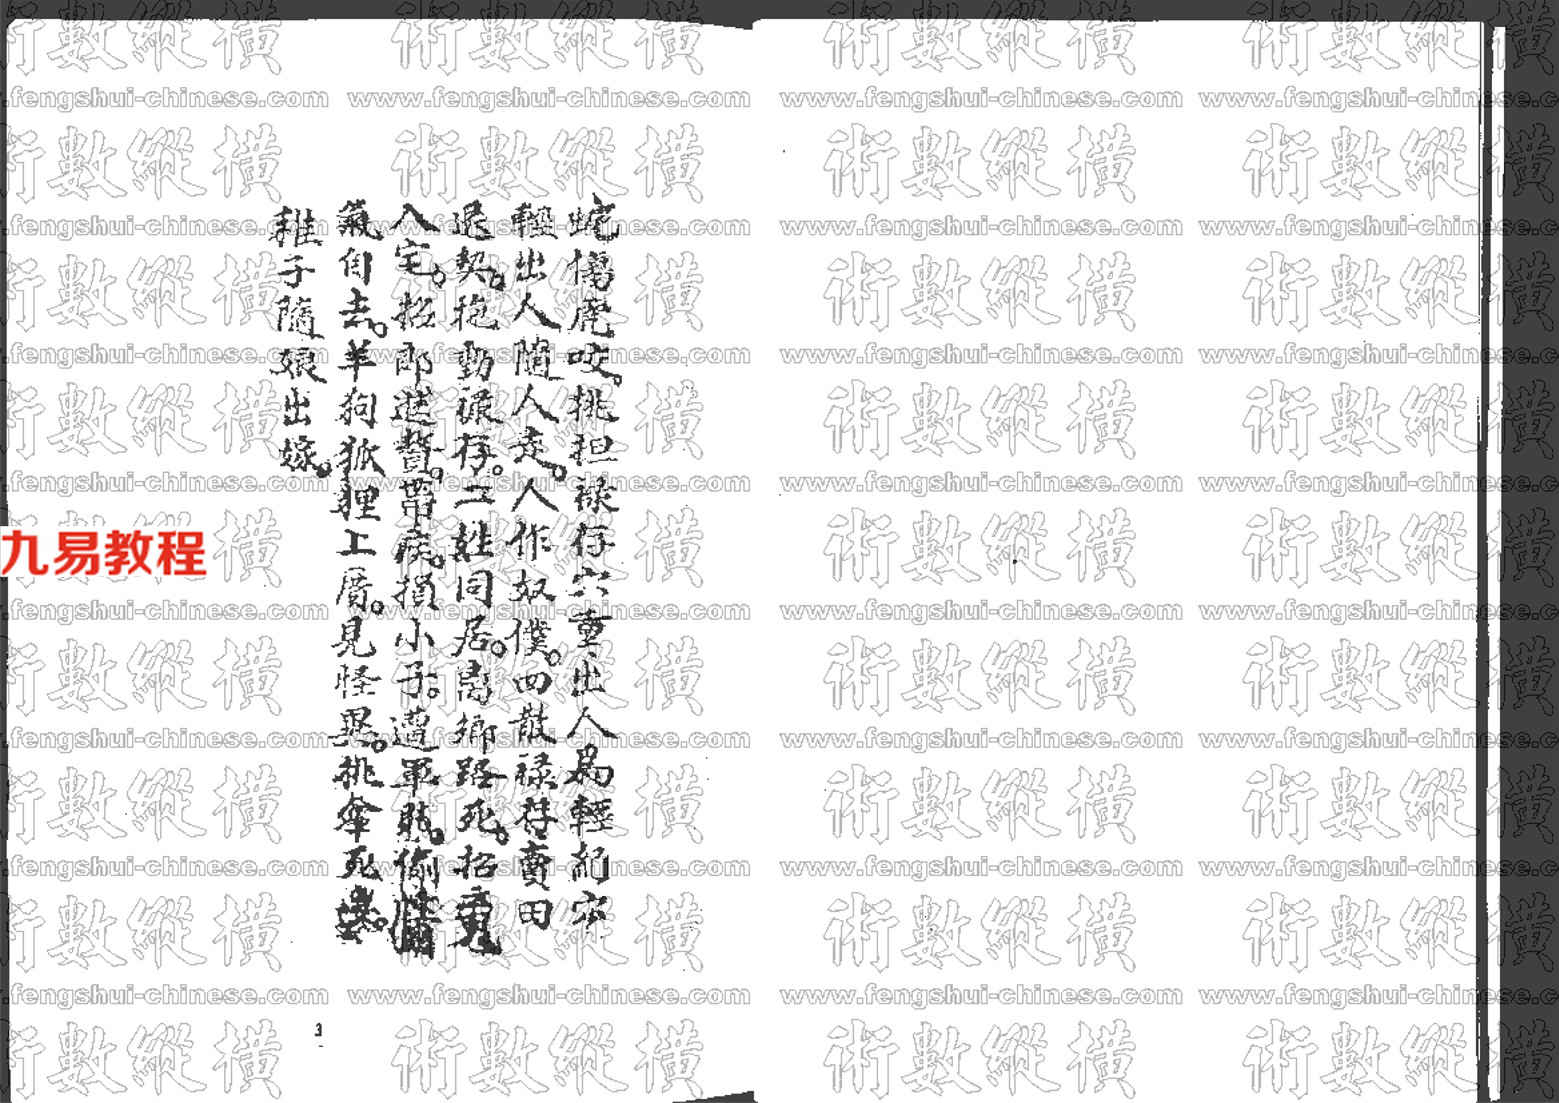 蛇傷虎咬。挑担祿存穴重出人為輕
輕出人隨人走。人作奴僕。四散祿存賣田
退契。抱動祿存。二姓同居。离鄉路死。招
入宅。招郎進贅。帶疾。損小子。遭軍
自去。羊狗狐狸上厝。見怪異。挑傘死
稚子隨娘出嫁。
3
九易教程
術數縱橫
www.fengshui-chinese.com